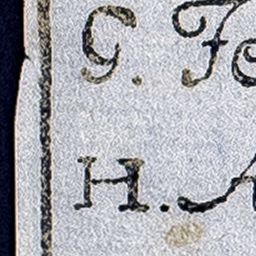 G. Fo
H. A